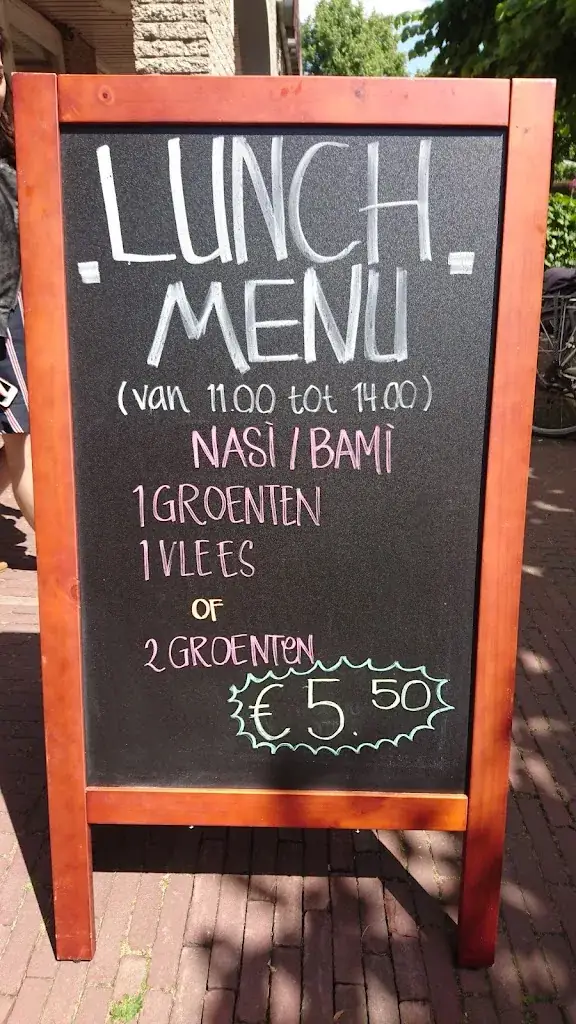 LUNCH
MENU
(van 11.00 tot 14.00)
NASI / BAMI
1 GROENTEN
1 VLEES
OF
2 GROENTEN
€ 5.50